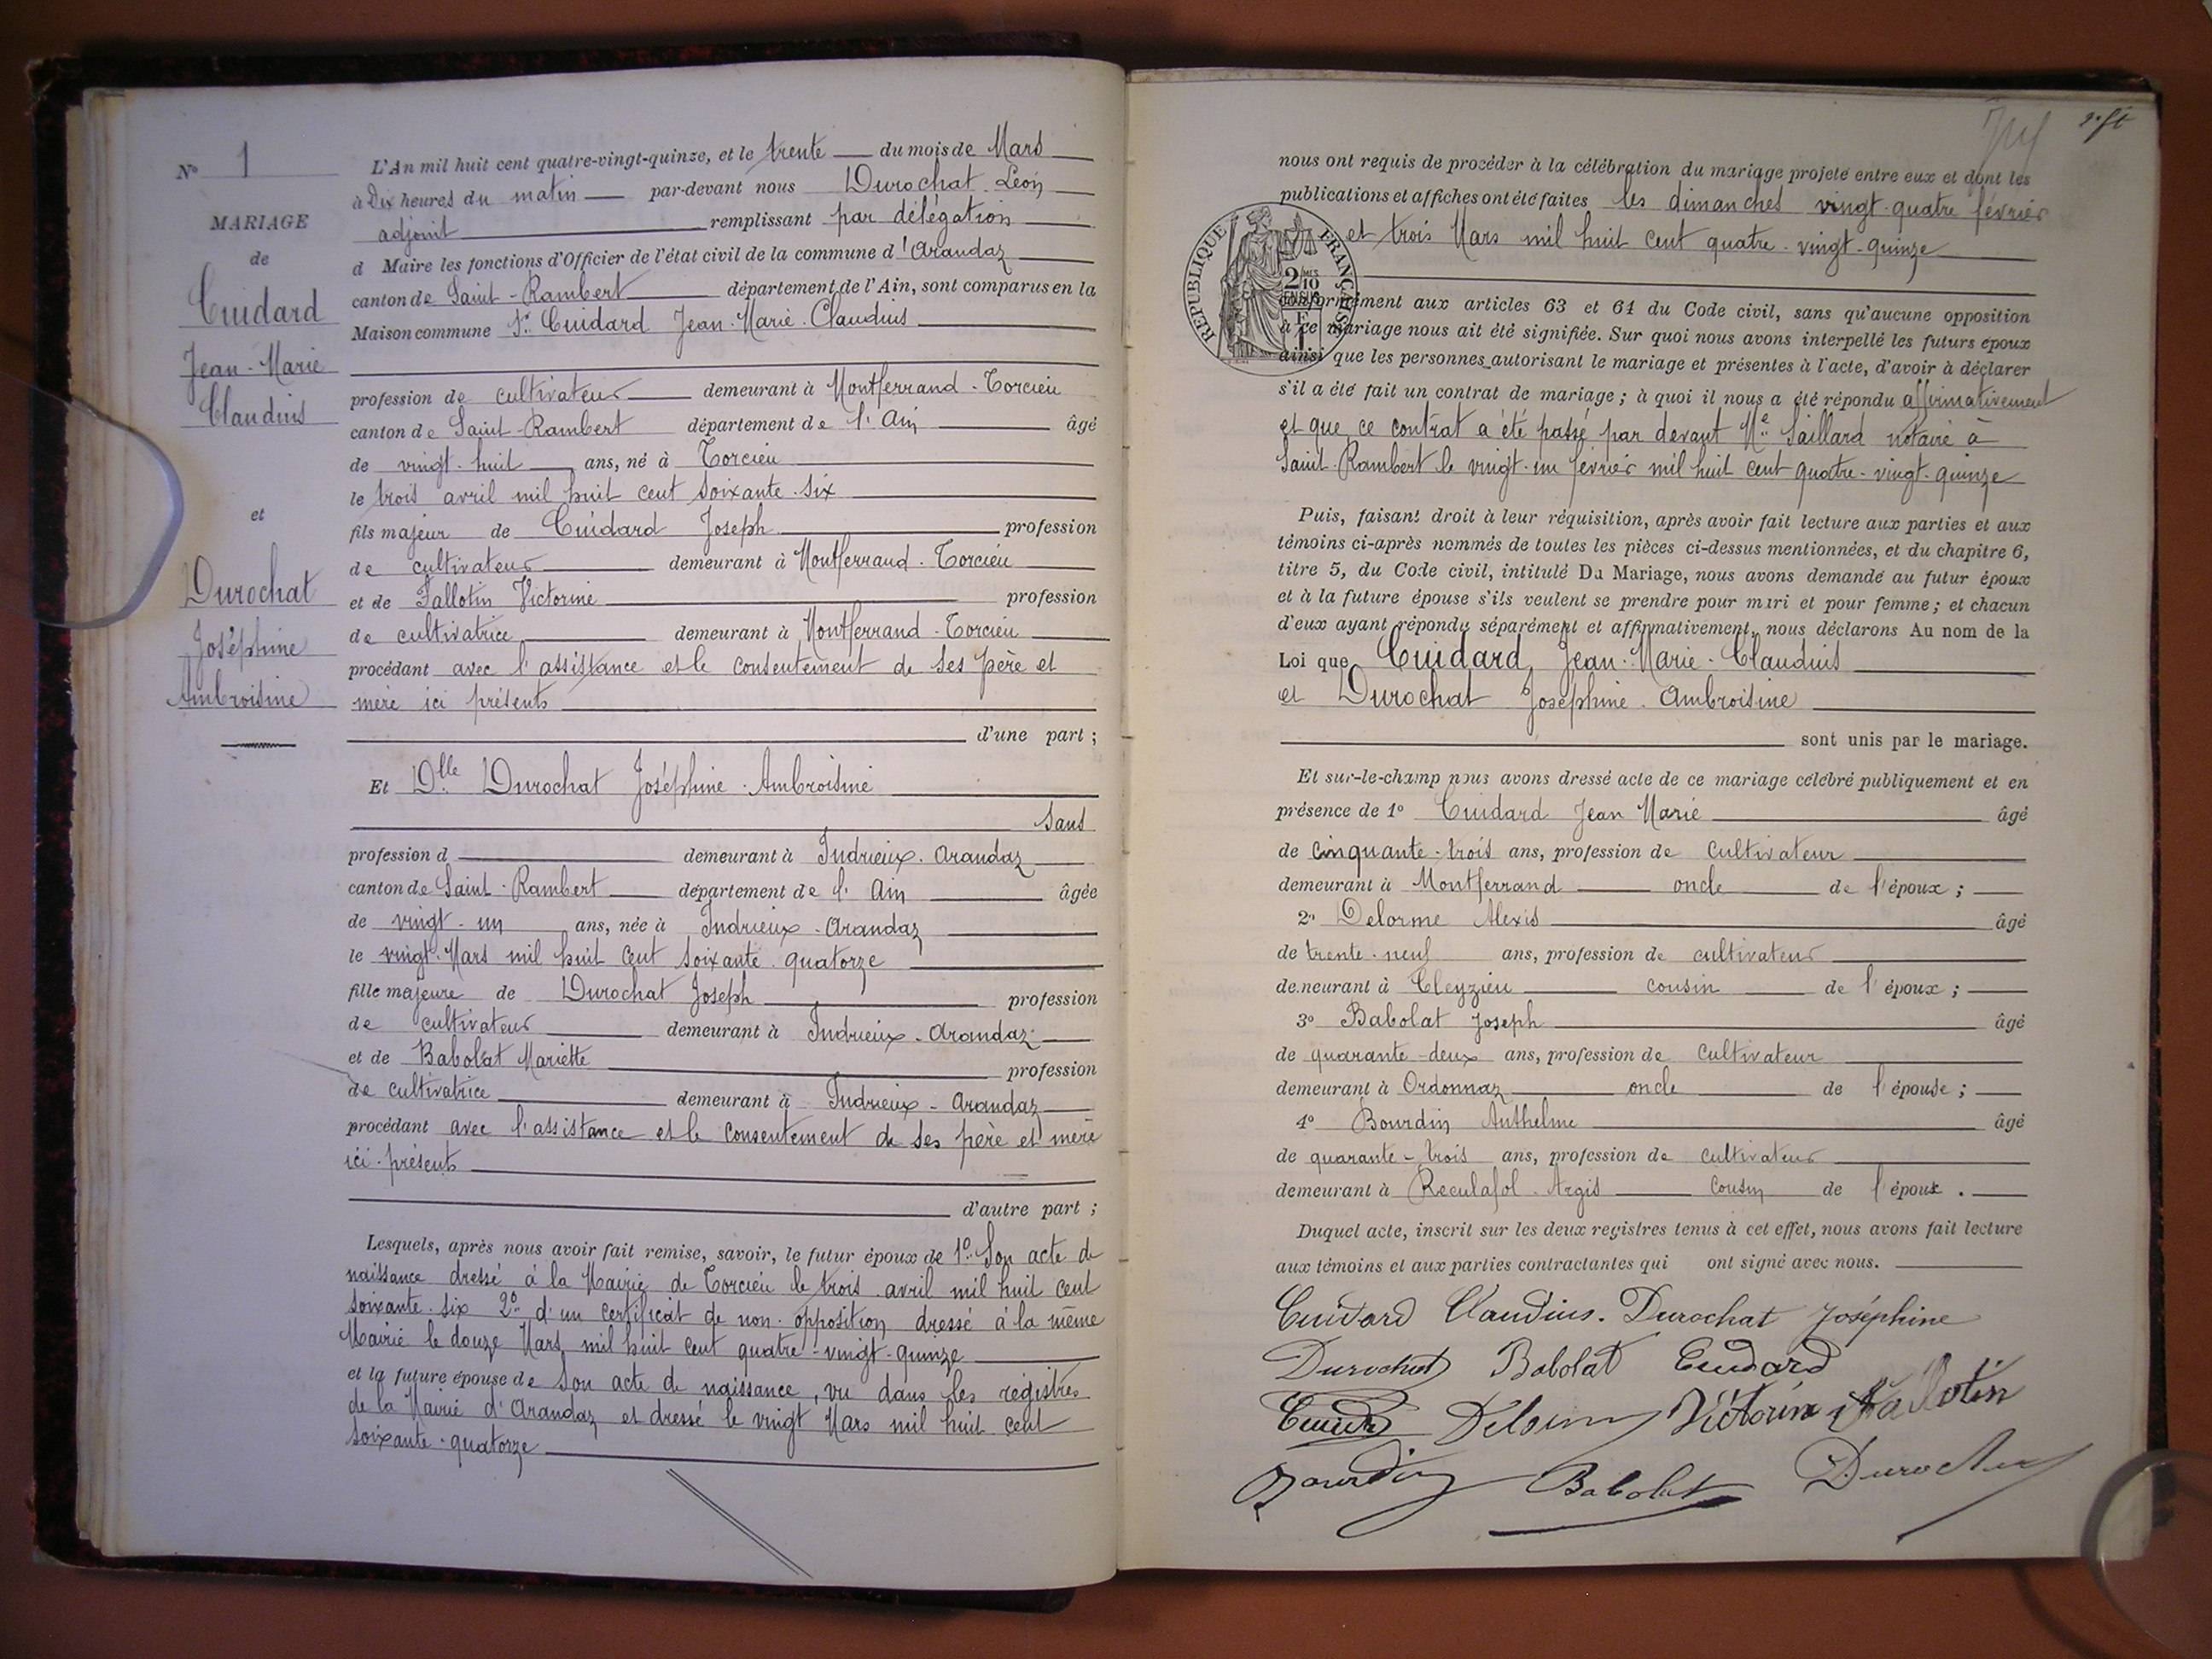 N° 1
MARIAGE
de
Cuidard
Jean-Marie
Claudius
et
Durochat
Joséphine
Ambroisine
L'An mil huit cent quatre-vingt-quinze, et le trente du mois de Mars
à Dix heures du matin par-devant nous Durochat Léon
adjoint remplissant par délégation
d Maire les fonctions d'Officier de l'état civil de la commune d'Arandaz
canton de Saint-Rambert département de l'Ain, sont comparus en la
Maison commune Sr. Cuidard Jean-Marie-Claudius
profession de cultivateur demeurant à Montferrand-Torcieu
canton de Saint-Rambert département de l'Ain âgé
de vingt-huit ans, né à Torcieu
le trois avril mil huit cent soixante-six
fils majeur de Cuidard Joseph profession
de cultivateur demeurant à Montferrand-Torcieu
et de Fallotin Victorine profession
de cultivatrice demeurant à Montferrand-Torcieu
procédant avec l'assistance et le consentement de ses père et
mère ici présents
d'une part ;
Et Dlle Durochat Joséphine-Ambroisine
sans
profession d demeurant à Indrieux-Arandaz
canton de Saint-Rambert département de l'Ain âgée
de vingt-un ans, née à Indrieux-Arandaz
le vingt Mars mil huit cent soixante-quatorze
fille majeure de Durochat Joseph profession
de cultivateur demeurant à Indrieux-Arandaz
et de Babolat Mariette profession
de cultivatrice demeurant à Indrieux-Arandaz
procédant avec l'assistance et le consentement de ses père et mère
ici-présents
d'autre part ;
Lesquels, après nous avoir fait remise, savoir, le futur époux de 1° Son acte de
naissance dressé à la Mairie de Torcieu le trois avril mil huit cent
soixante-six 2° d'un certificat de non-opposition dressé à la même
Mairie le douze Mars mil huit cent quatre-vingt-quinze
et la future épouse de Son acte de naissance, vu dans les registres
de la Mairie d'Arandaz et dressé le vingt Mars mil huit cent
soixante-quatorze
nous ont requis de procéder à la célébration du mariage projeté entre eux et dont les
publications et affiches ont été faites les dimanches vingt-quatre février
et trois Mars mil huit cent quatre-vingt-quinze
RÉPUBLIQUE FRANÇAISE
2/10
conformément aux articles 63 et 64 du Code civil, sans qu'aucune opposition
à ce mariage nous ait été signifiée. Sur quoi nous avons interpellé les futurs époux
ainsi que les personnes autorisant le mariage et présentes à l'acte, d'avoir à déclarer
s'il a été fait un contrat de mariage ; à quoi il nous a été répondu affirmativement
et que ce contrat a été passé par devant Me Saillard notaire à
Saint-Rambert le vingt-un février mil huit cent quatre-vingt-quinze
Puis, faisant droit à leur réquisition, après avoir fait lecture aux parties et aux
témoins ci-après nommés de toutes les pièces ci-dessus mentionnées, et du chapitre 6,
titre 5, du Code civil, intitulé Du Mariage, nous avons demandé au futur époux
et à la future épouse s'ils veulent se prendre pour mari et pour femme ; et chacun
d'eux ayant répondu séparément et affirmativement, nous déclarons Au nom de la
Loi que Cuidard, Jean-Marie-Claudius
et Durochat Joséphine-Ambroisine
sont unis par le mariage.
Et sur-le-champ nous avons dressé acte de ce mariage célébré publiquement et en
présence de 1° Cuidard Jean Marie âgé
de cinquante-trois ans, profession de cultivateur
demeurant à Montferrand oncle de l'époux ;
2° Delorme Alexis âgé
de trente-neuf ans, profession de cultivateur
demeurant à Cleyzieu cousin de l'époux ;
3° Babolat Joseph âgé
de quarante-deux ans, profession de cultivateur
demeurant à Ordonnaz oncle de l'épouse ;
4° Bourdin Anthelme âgé
de quarante-trois ans, profession de cultivateur
demeurant à Reculafol-Argis cousin de l'époux.
Duquel acte, inscrit sur les deux registres tenus à cet effet, nous avons fait lecture
aux témoins et aux parties contractantes qui ont signé avec nous.
Cuidard Claudius. Durochat Joséphine
Durochat Babolat Cuidard
Cuidard Delorme Victorine Fallotin
Bourdin Babolat Durochat